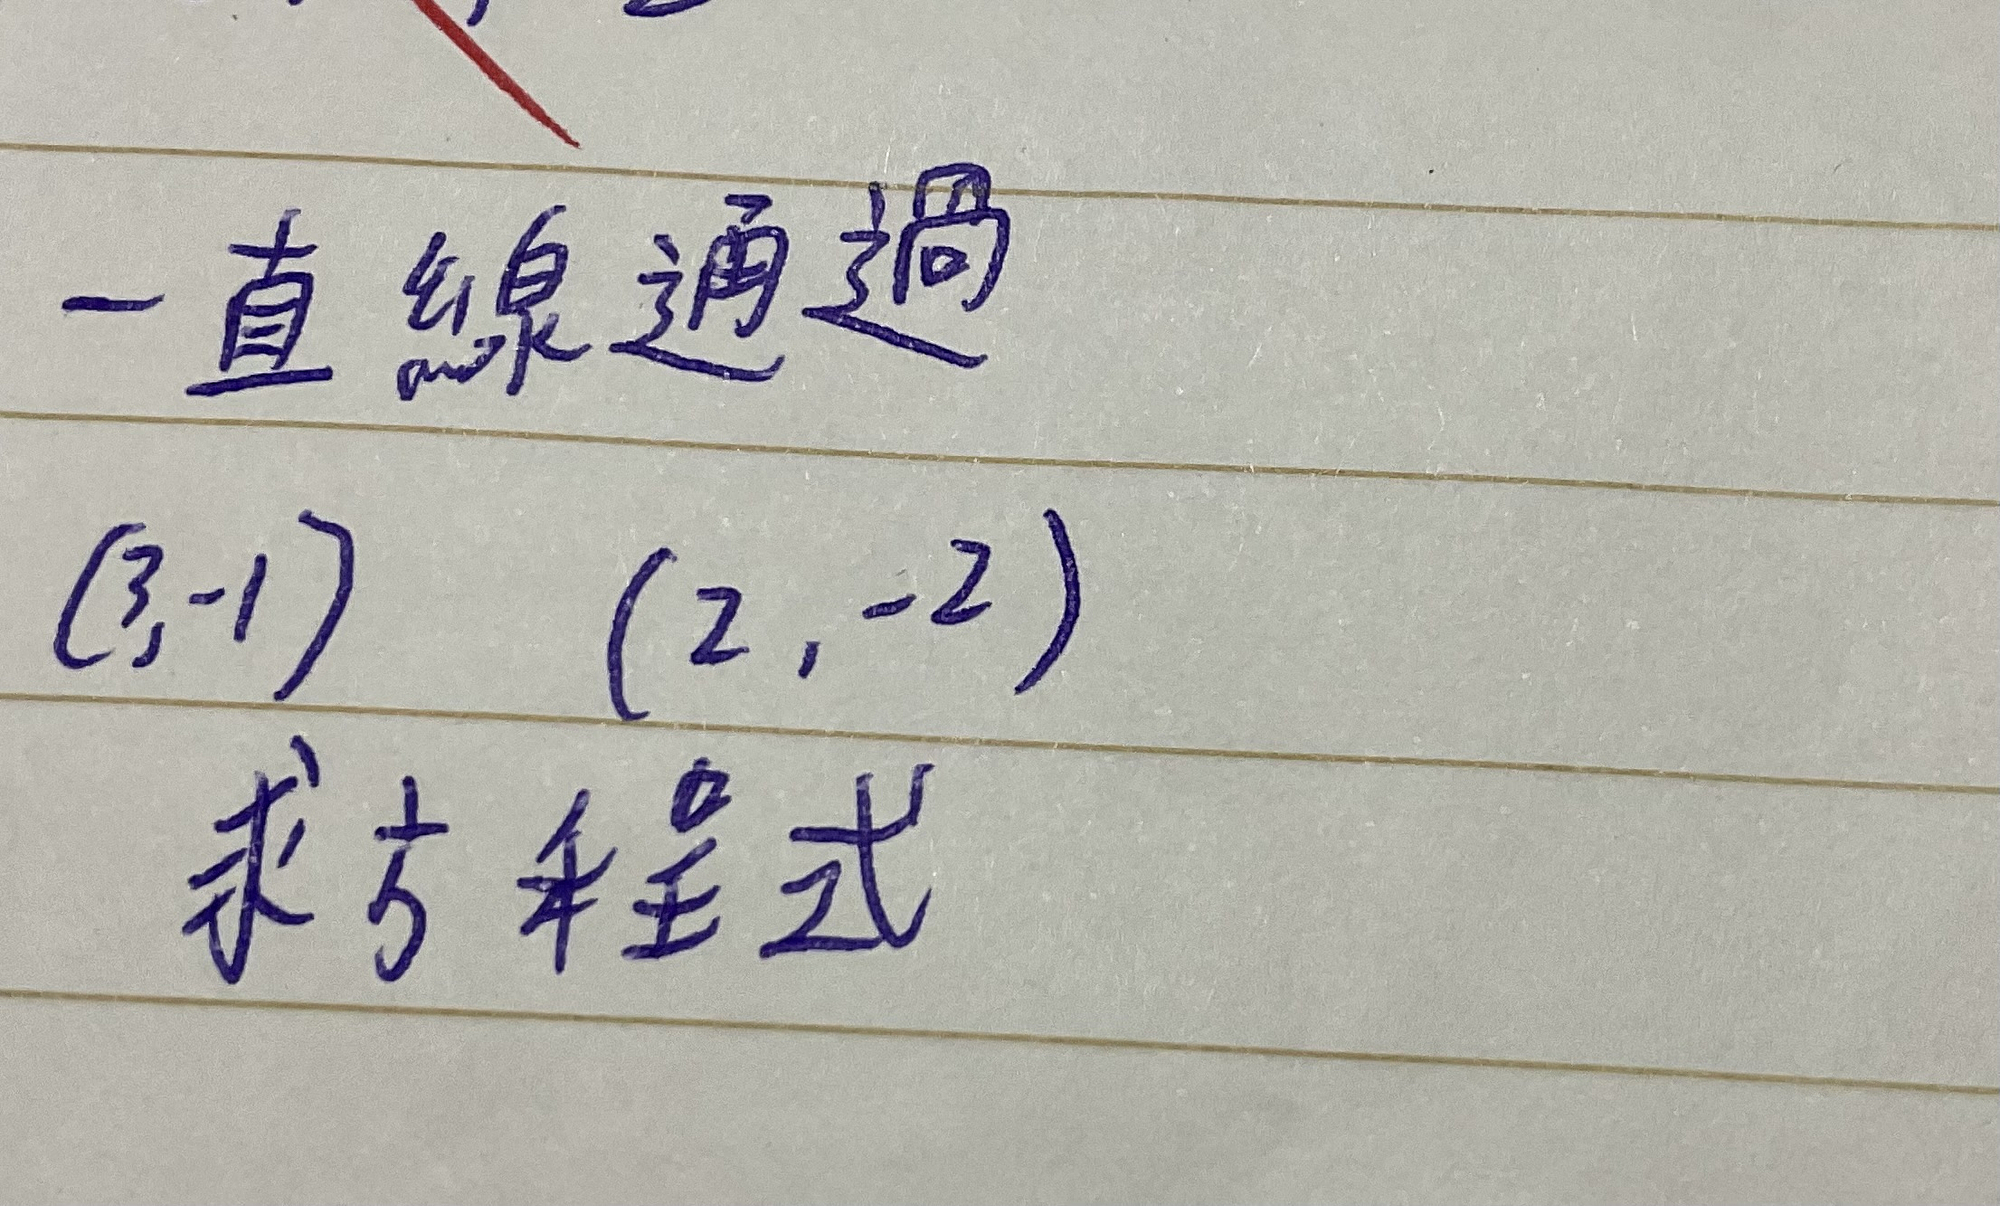 一直線通過
(3,-1) (2,-2)
求方程式